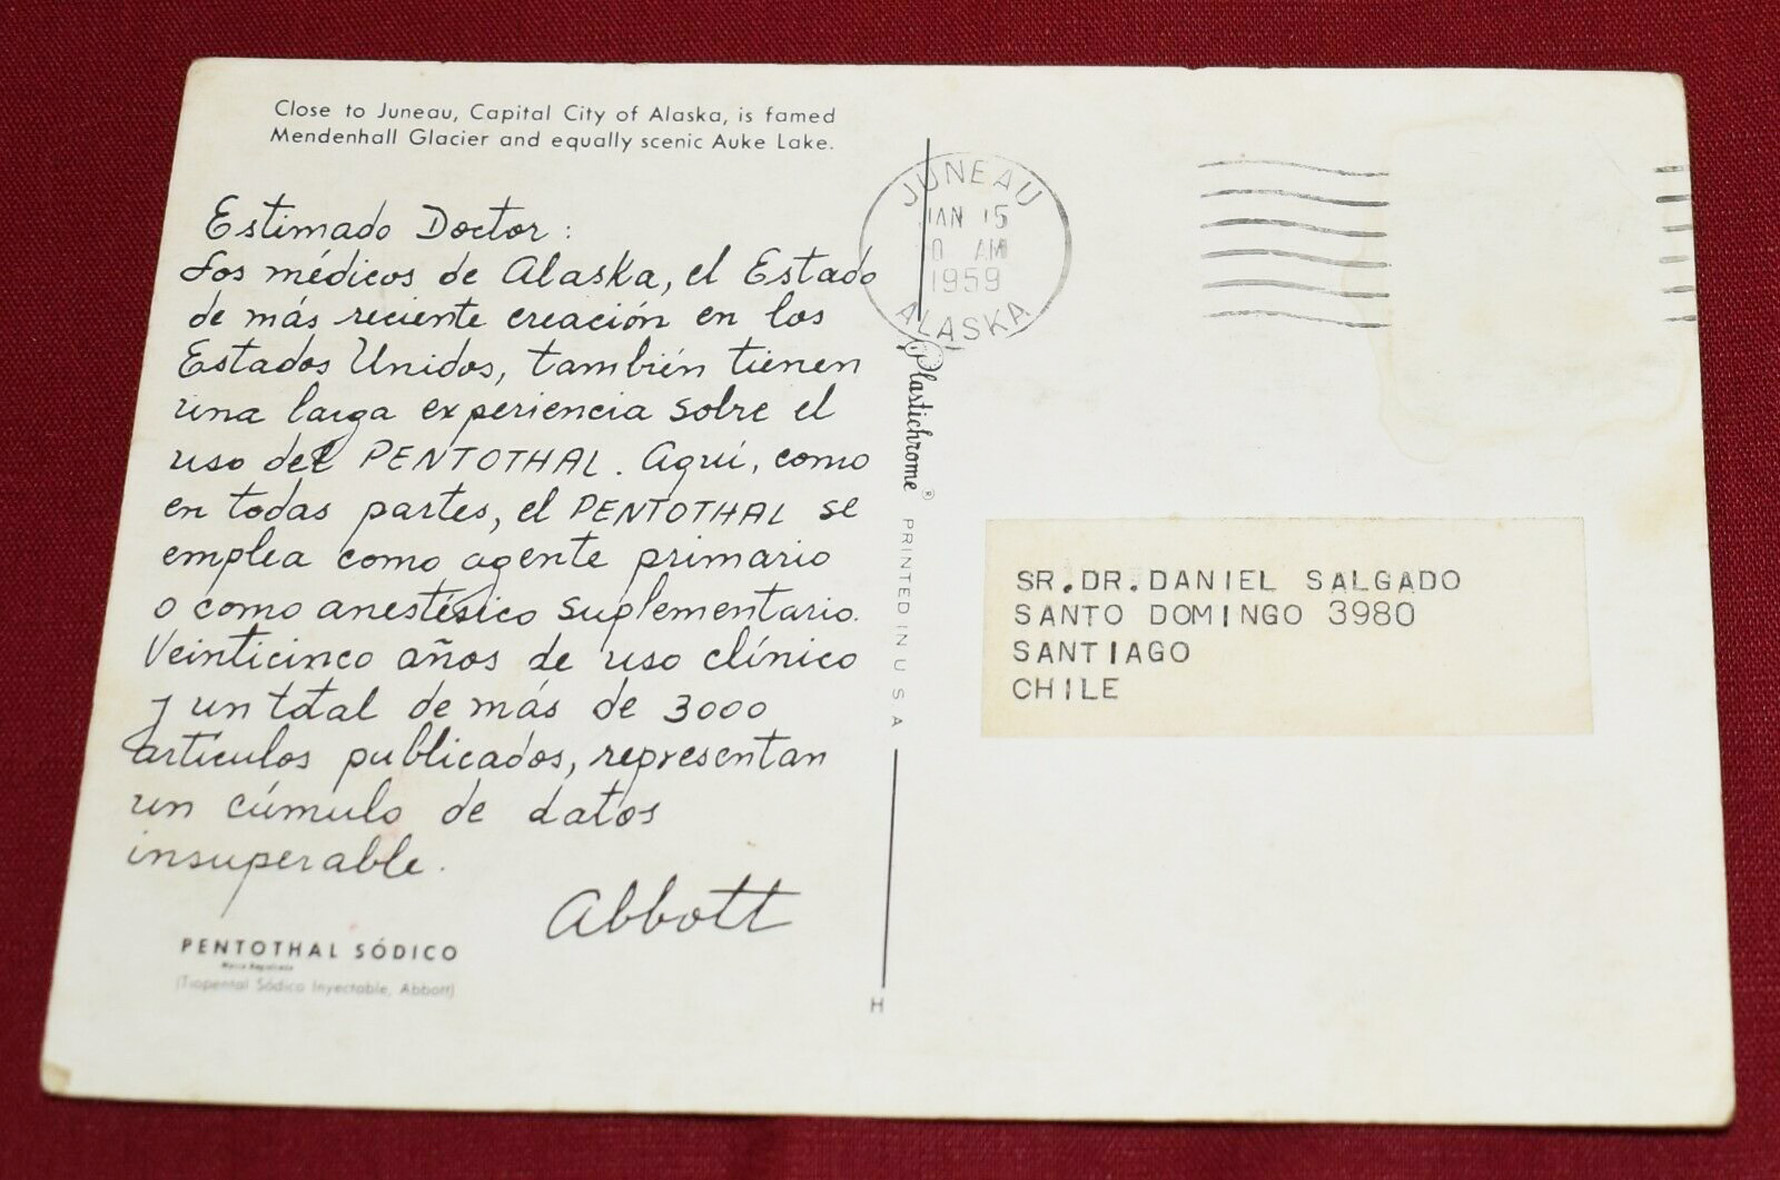 Close to Juneau, Capital City of Alaska, is famed
Mendenhall Glacier and equally scenic Auke Lake.
Estimado Doctor:
Los médicos de Alaska, el Estado
de más reciente creación en los
Estados Unidos, también tienen
una larga experiencia sobre el
uso del PENTOTHAL. Aquí, como
en todas partes, el PENTOTHAL se
emplea como agente primario
o como anestésico suplementario.
Veinticinco años de uso clínico
y un total de más de 3000
artículos publicados, representan
un cúmulo de datos
insuperable.
Abbott
PENTOTHAL SÓDICO
Marca Registrada
(Tiopental Sódico Inyectable, Abbott)
JUNEAU
JAN 15
AM
1959
ALASKA
Plastichrome®
PRINTED IN U S A
H
SR.DR.DANIEL SALGADO
SANTO DOMINGO 3980
SANTIAGO
CHILE